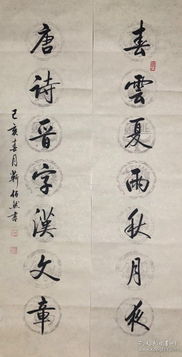 春雲夏雨秋月夜
唐詩晉字漢文章
己亥春月
書